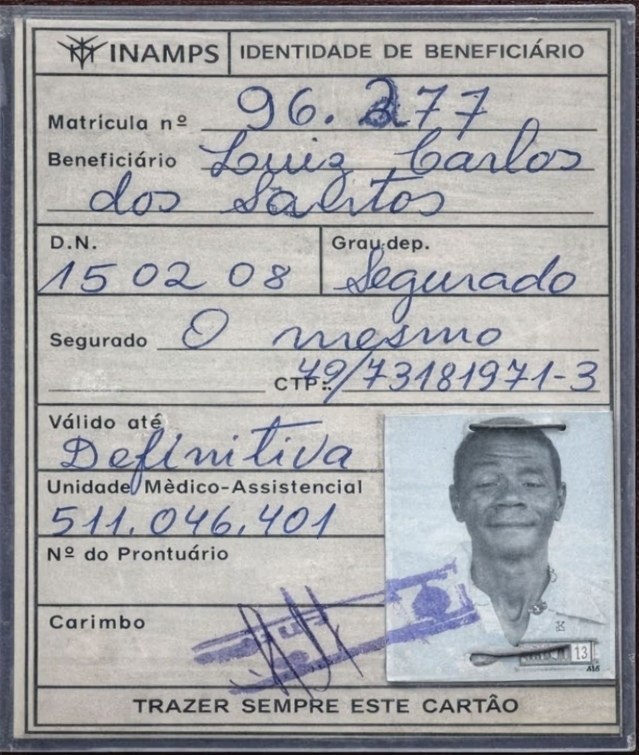 INAMPS IDENTIDADE DE BENEFICIÁRIO
Matrícula nº 96.277
Beneficiário Luiz Carlos
dos Santos
D.N. Grau dep.
15 02 08 Segurado
Segurado O mesmo
CTP: 49/73181971-3
Válido até
Definitiva
Unidade Mèdico-Assistencial
511.046.401
Nº do Prontuário
Carimbo
13
TRAZER SEMPRE ESTE CARTÃO